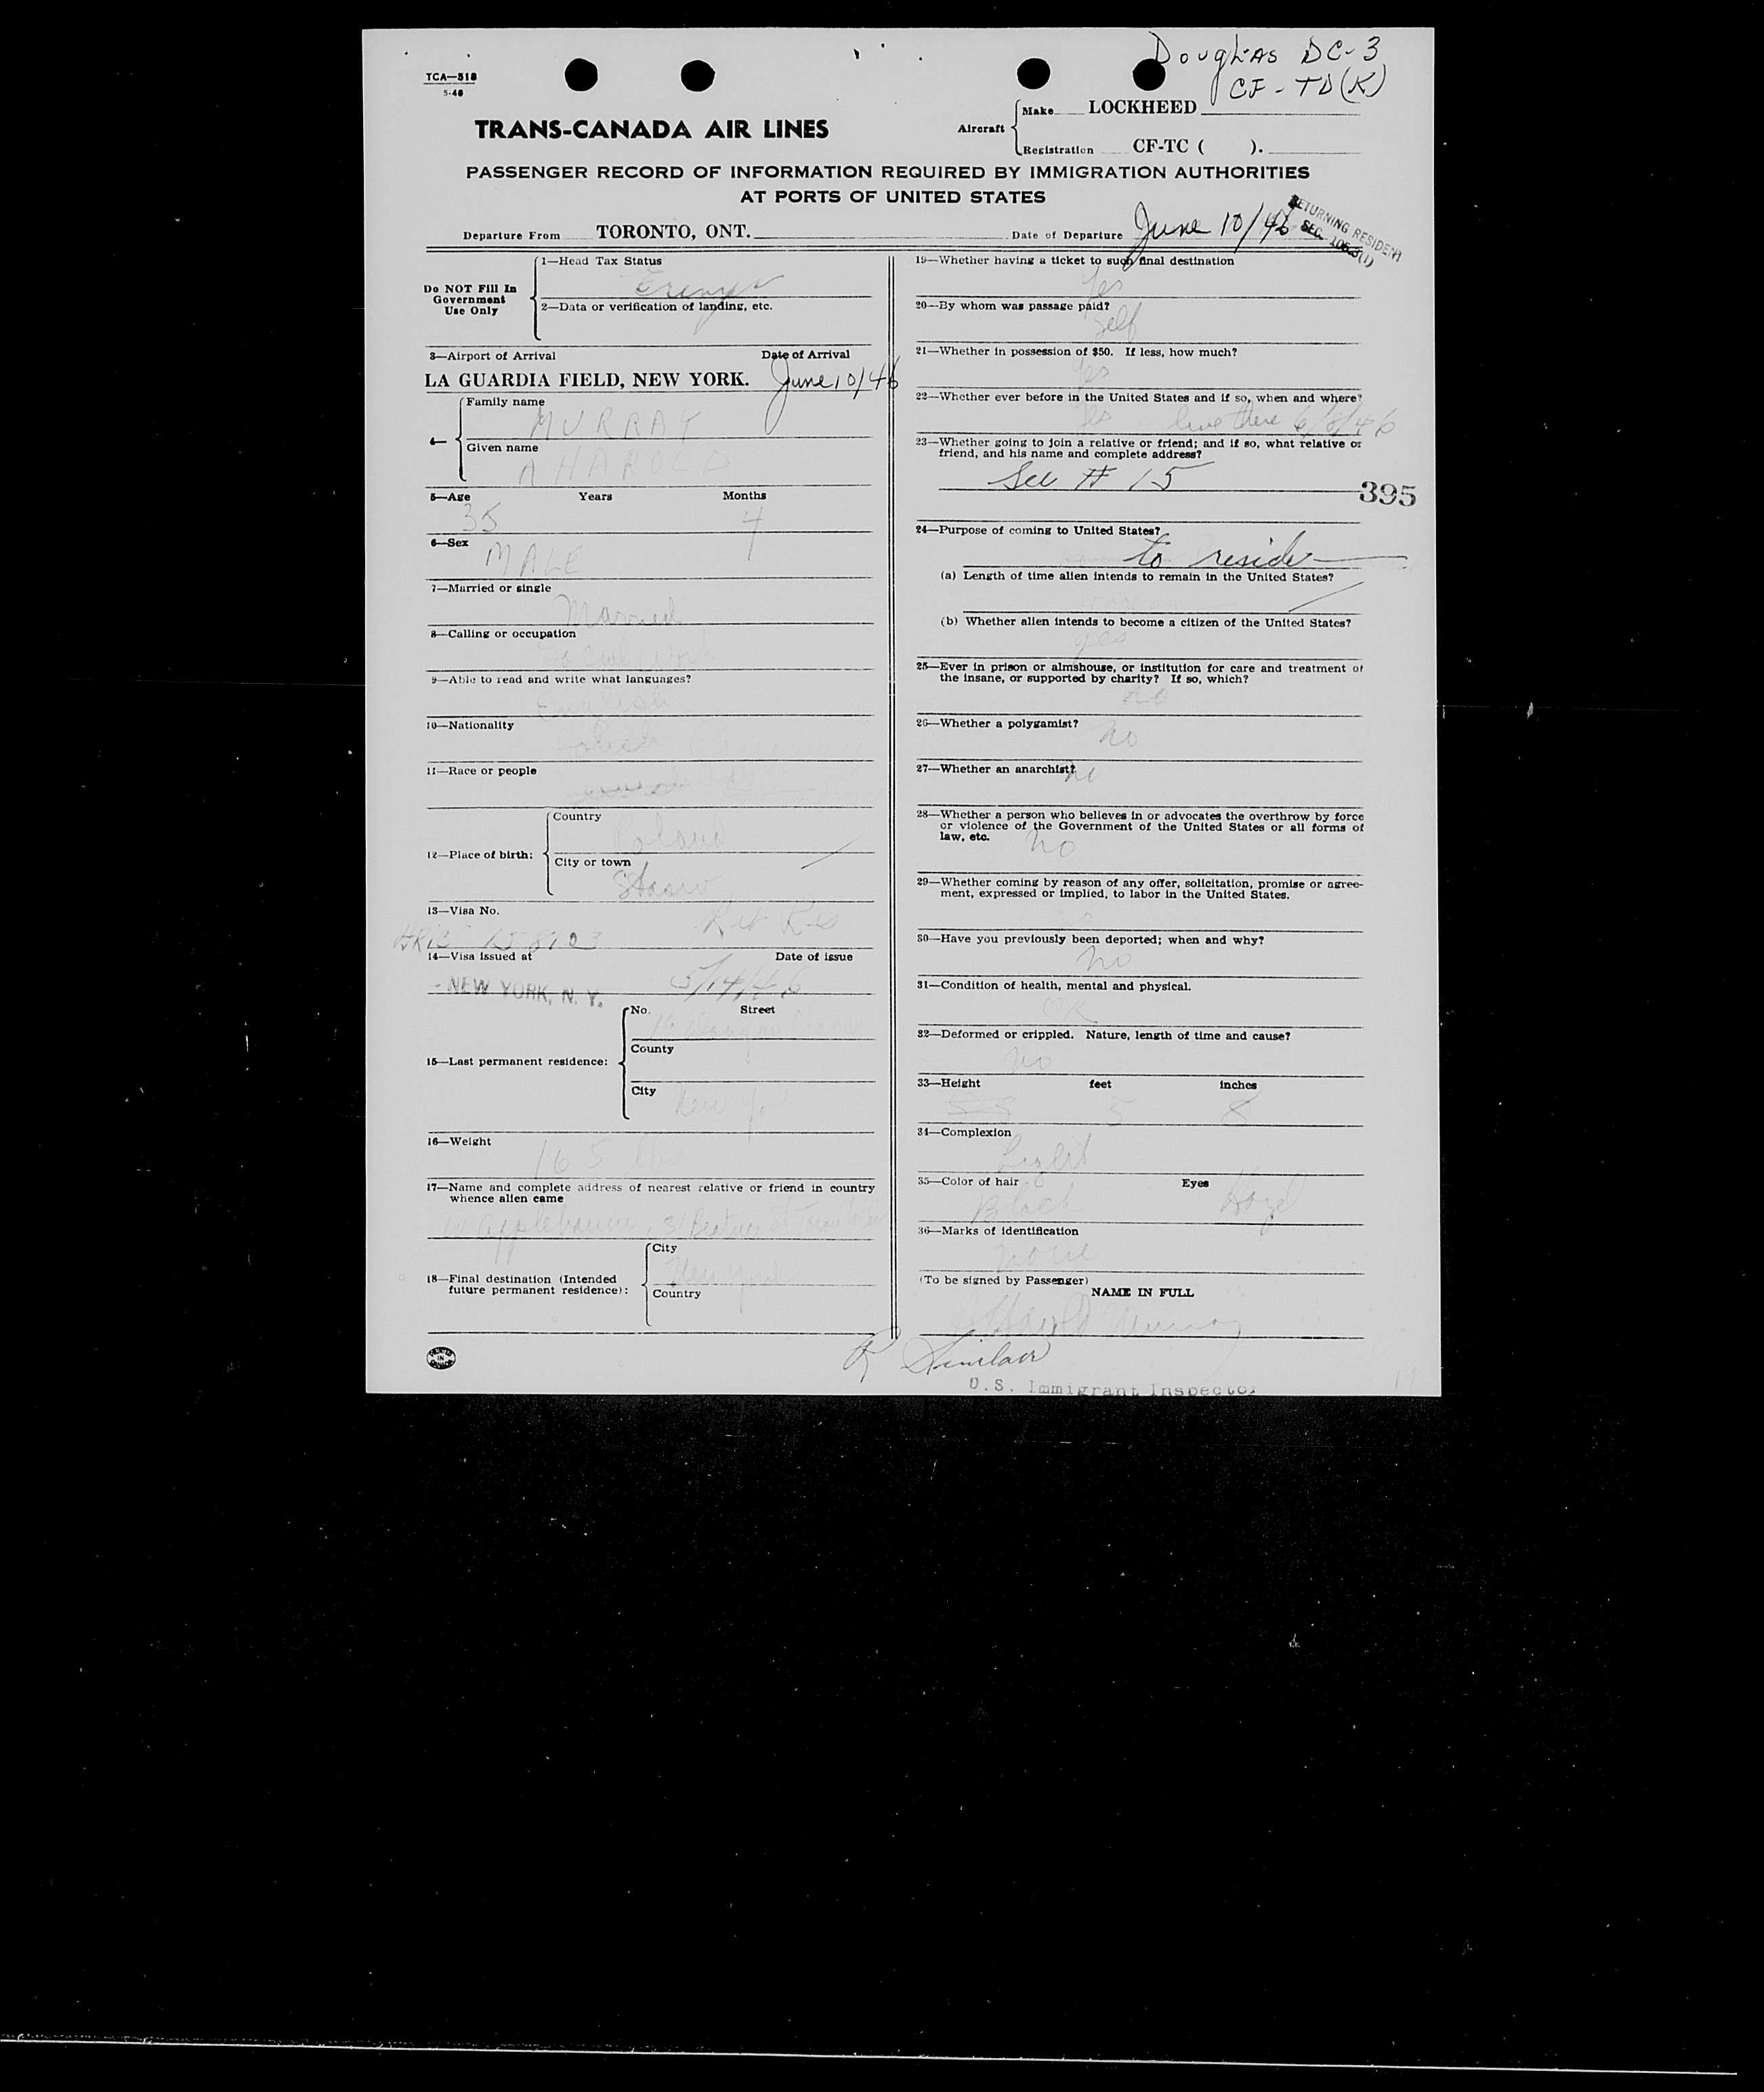 Douglas DC-3
CF-TD(K)
TCA—518
5-46
TRANS-CANADA AIR LINES
Aircraft
Make LOCKHEED
Registration CF-TC ( ).
PASSENGER RECORD OF INFORMATION REQUIRED BY IMMIGRATION AUTHORITIES
AT PORTS OF UNITED STATES
RETURNING RESIDENT
SEC.
Departure From TORONTO, ONT. Date of Departure June 10/46
Do NOT Fill In
Government
Use Only
1—Head Tax Status
2—Data or verification of landing, etc.
3—Airport of Arrival Date of Arrival
LA GUARDIA FIELD, NEW YORK. June 10/46
4—
Family name
MURRAY
Given name
A HAROLD
5—Age Years Months
35 4
6—Sex
MALE
7—Married or single
Married
8—Calling or occupation
9—Able to read and write what languages?
English
10—Nationality
11—Race or people
12—Place of birth:
Country
Poland
City or town
13—Visa No.
Ret Res
158103
14—Visa issued at Date of issue
NEW YORK, N. Y. 5/14/46
15—Last permanent residence:
No. Street
County
City
New York
16—Weight
165 lbs
17—Name and complete address of nearest relative or friend in country
whence alien came
Applebaum, 31 Beatrice St Toronto
18—Final destination (Intended
future permanent residence):
City
New York
Country
19—Whether having a ticket to such final destination
Yes
20—By whom was passage paid?
Self
21—Whether in possession of $50. If less, how much?
Yes
22—Whether ever before in the United States and if so, when and where?
Yes live there 6/8/46
23—Whether going to join a relative or friend; and if so, what relative or
friend, and his name and complete address?
See # 15
395
24—Purpose of coming to United States?
to reside
(a) Length of time alien intends to remain in the United States?
(b) Whether alien intends to become a citizen of the United States?
yes
25—Ever in prison or almshouse, or institution for care and treatment of
the insane, or supported by charity? If so, which?
no
26—Whether a polygamist?
no
27—Whether an anarchist?
no
28—Whether a person who believes in or advocates the overthrow by force
or violence of the Government of the United States or all forms of
law, etc.
no
29—Whether coming by reason of any offer, solicitation, promise or agree-
ment, expressed or implied, to labor in the United States.
30—Have you previously been deported; when and why?
no
31—Condition of health, mental and physical.
OK
32—Deformed or crippled. Nature, length of time and cause?
no
33—Height feet inches
5 8
34—Complexion
Light
35—Color of hair Eyes
Black Hazel
36—Marks of identification
none
(To be signed by Passenger)
NAME IN FULL
A Harold Murray
PRINTED IN CANADA
R Sinclair
U.S. Immigrant Inspector